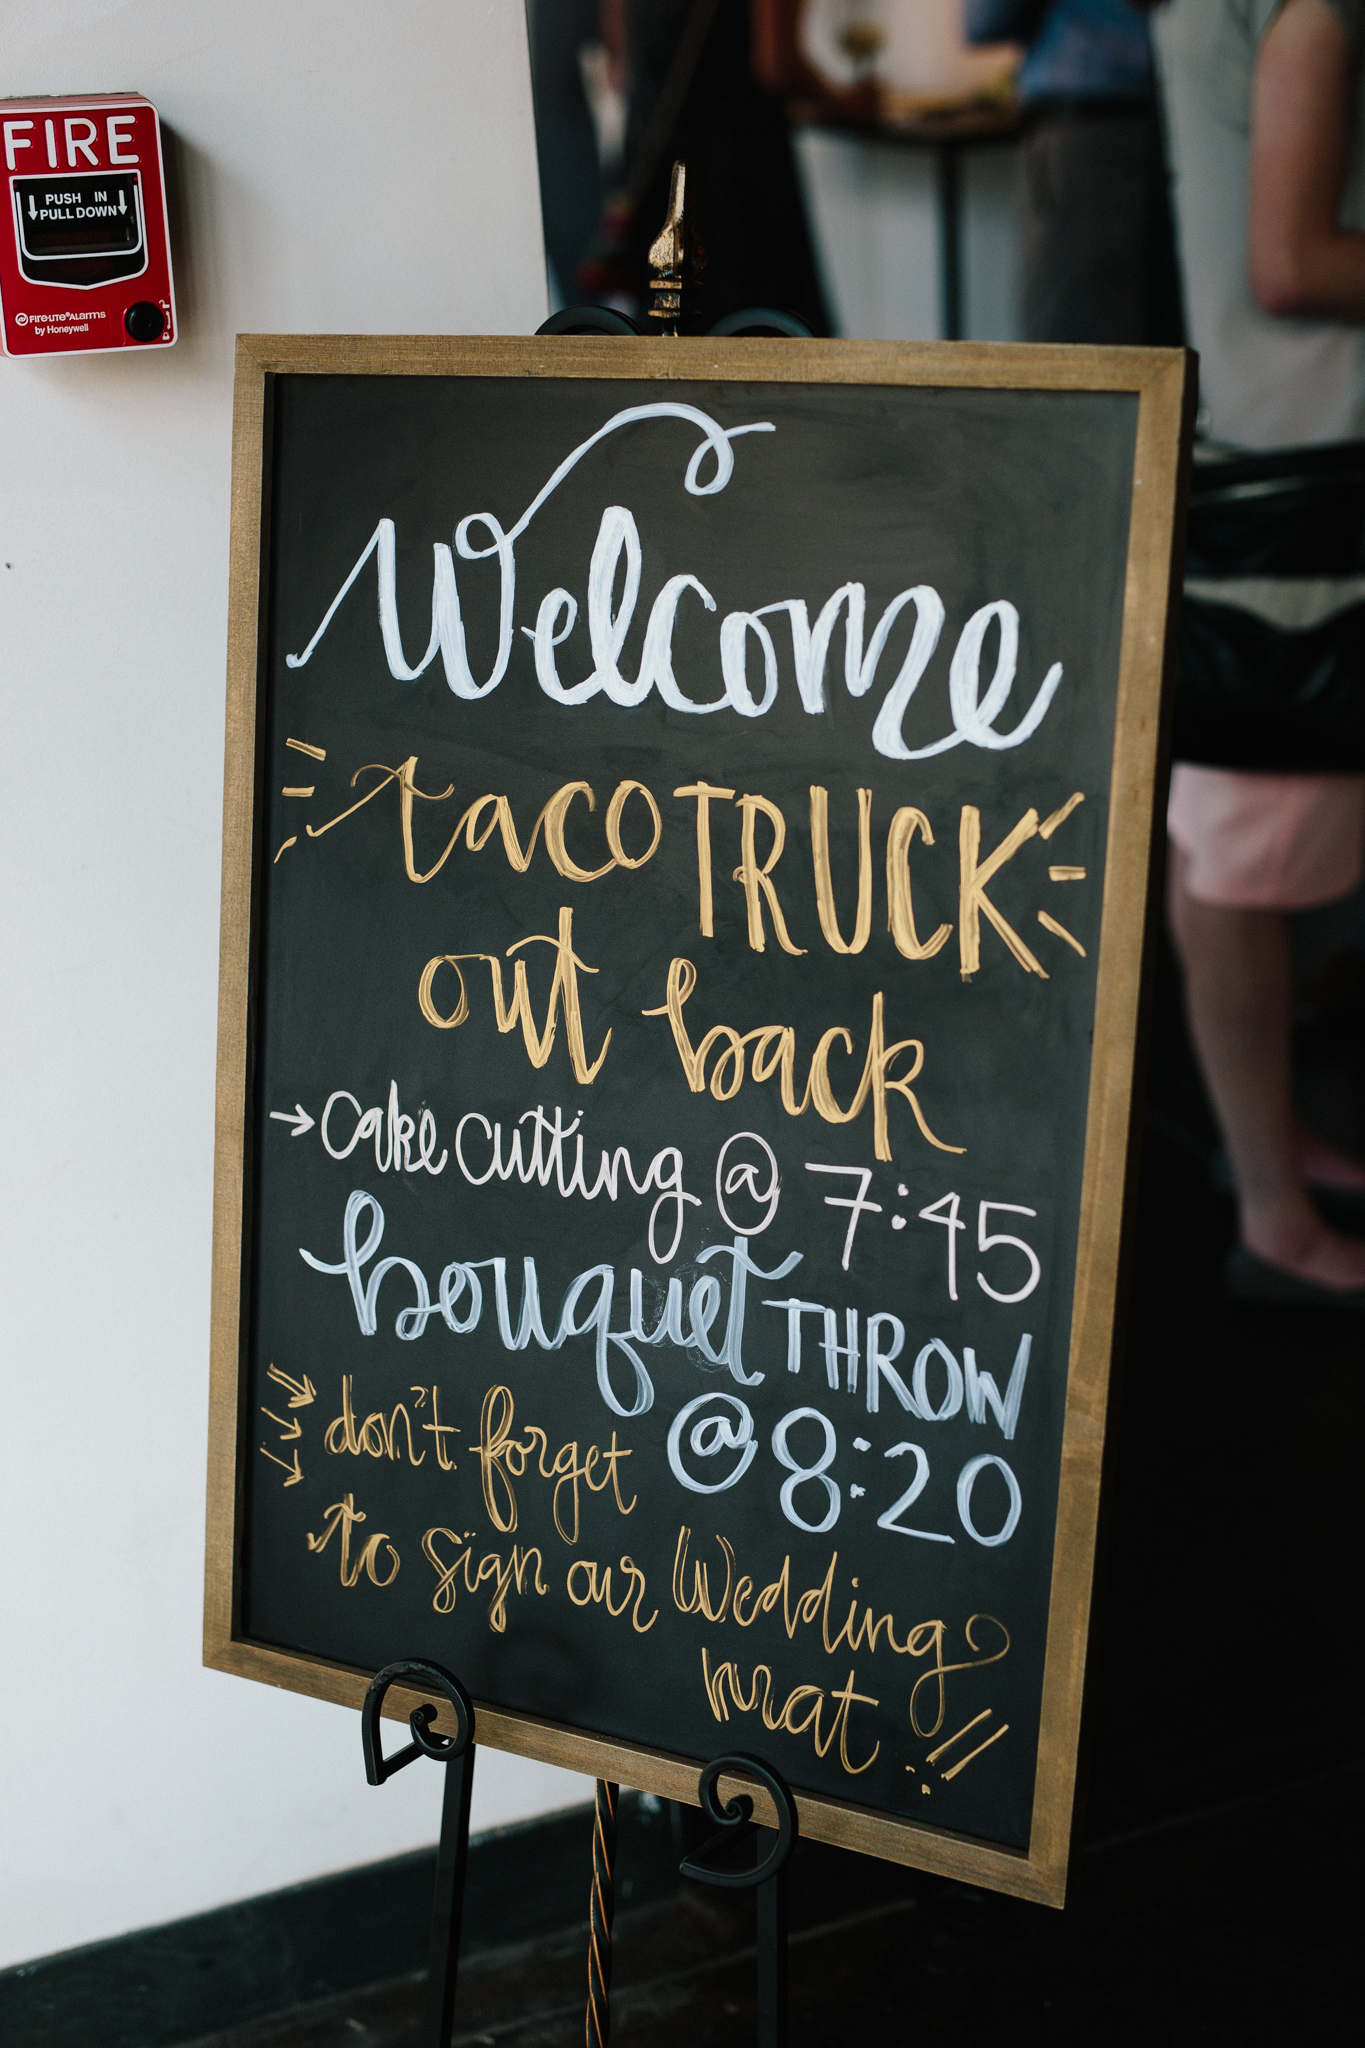 FIRE
PUSH IN
PULL DOWN
FIRE-LITE® ALARMS
by Honeywell
Welcome
taco TRUCK
out back
→ cake cutting @ 7:45
bouquet THROW
@ 8:20
don't forget
to sign our Wedding
mat!!